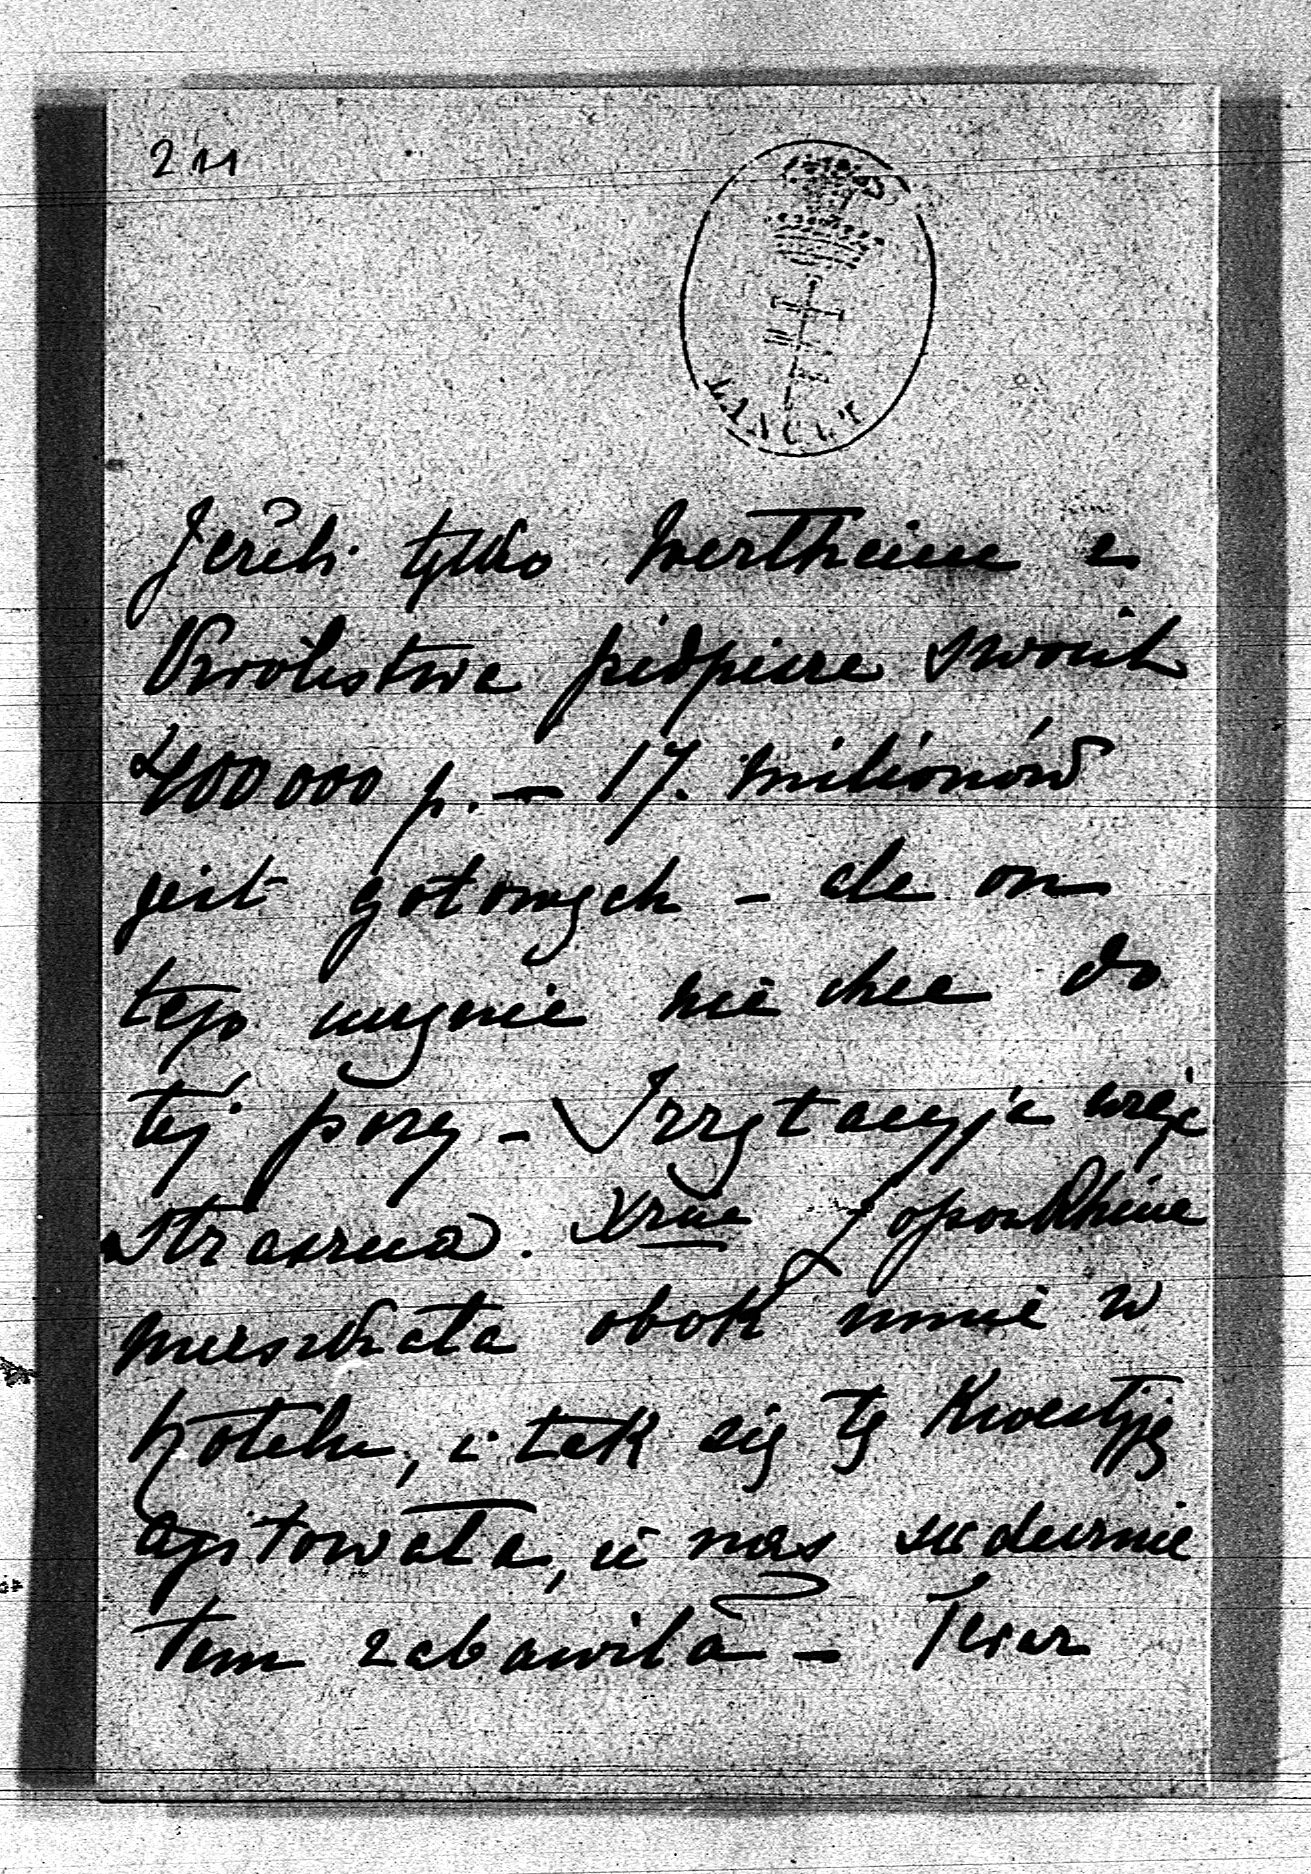 211
ŁAŃCUT
Jeżeli tylko Wertheim z
Królestwa podpisze swoich
400 000 r. — 17. milionów
jest gotowych – ale on
tego uczynić nie chce do
tej pory – Irrytacyja więc
straszna.
mieszkała obok mnie w
hotelu, i tak się tą kwestyją
agitowała, iż nas
tem zabawiła – Teraz